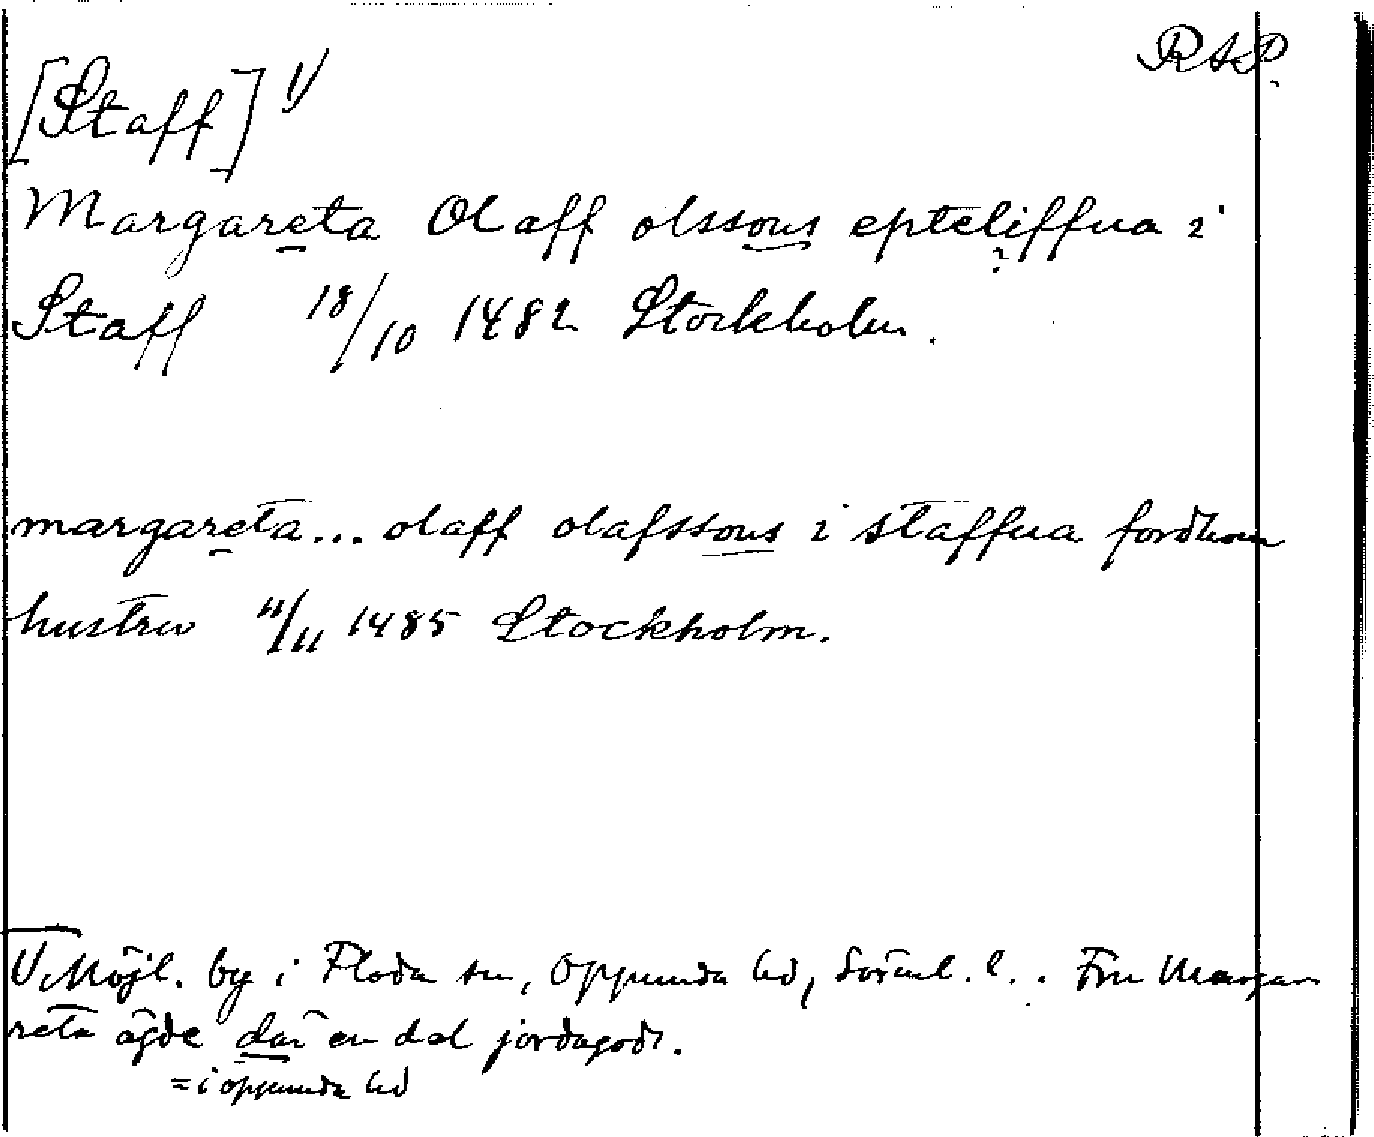 RAP.
[Staff] 1/
Margareta Olaff olssons epteliffua i
Staff 18/10 1482 Stockholm.
margareta... olaff olafssons i staffua fordhom
hustrv 11/11 1485 Stockholm.
1/ Möjl. by i Floda sn, Oppunda hd, Söml. l.. Fru Marga-
reta ägde där en del jordagods.
= i oppunda hd